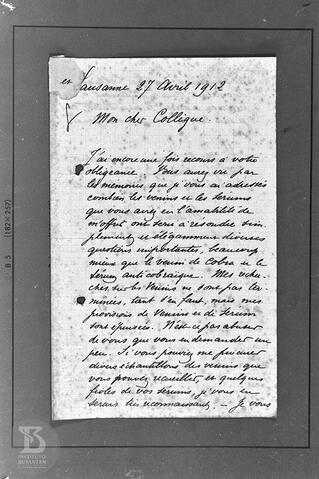 Lausanne 27 Avril 1912
Mon cher Collègue.
J'ai encore une fois recours à votre
obligeance. Vous aurez vu par
les mémoires que je vous ai adressés
combien les venins et les sérums
que vous avez eu l'amabilité de
m'offrir ont servi à résoudre sim-
plement et élégamment diverses
questions importantes, beaucoup
mieux que le venin de Cobra et le
sérum anticobraïque. Mes recher-
ches sur les Venins ne sont pas ter-
minées, tant s'en faut, mais mes
provisions de Venins et de Sérum
sont épuisées. N'est-ce pas abuser
de vous que vous en demander un
peu. Si vous pouvez me procurer
divers échantillons des venins que
vous pouvez recueillir, et quelques
fioles de vos sérums, je vous en
serais très reconnaissant. — Je vous
B 3 (182 × 257)
INSTITUTO
BUTANTAN